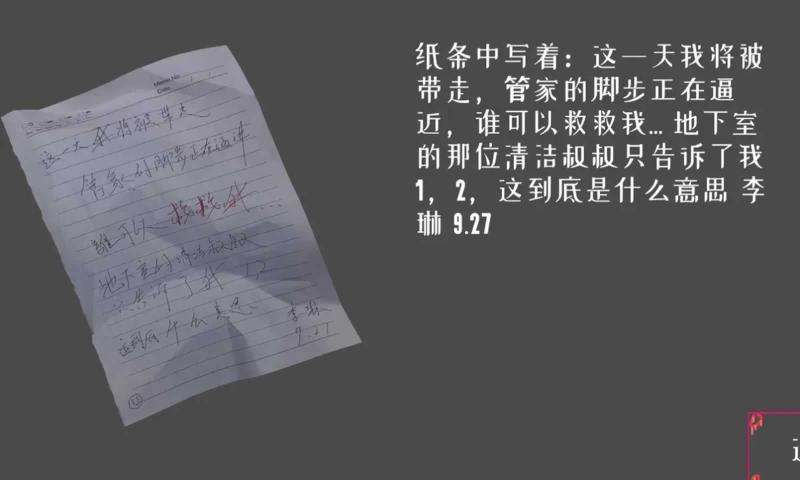 Memo No.
Date
这一天我将被带走
管家的脚步正在逼近
谁可以救救我...
地下室的清洁叔叔
只告诉了我 1 2
这到底什么意思
李琳
9.27
纸条中写着：这一天我将被
带走，管家的脚步正在逼
近，谁可以救救我... 地下室
的那位清洁叔叔只告诉了我
1，2，这到底是什么意思 李
琳 9.27